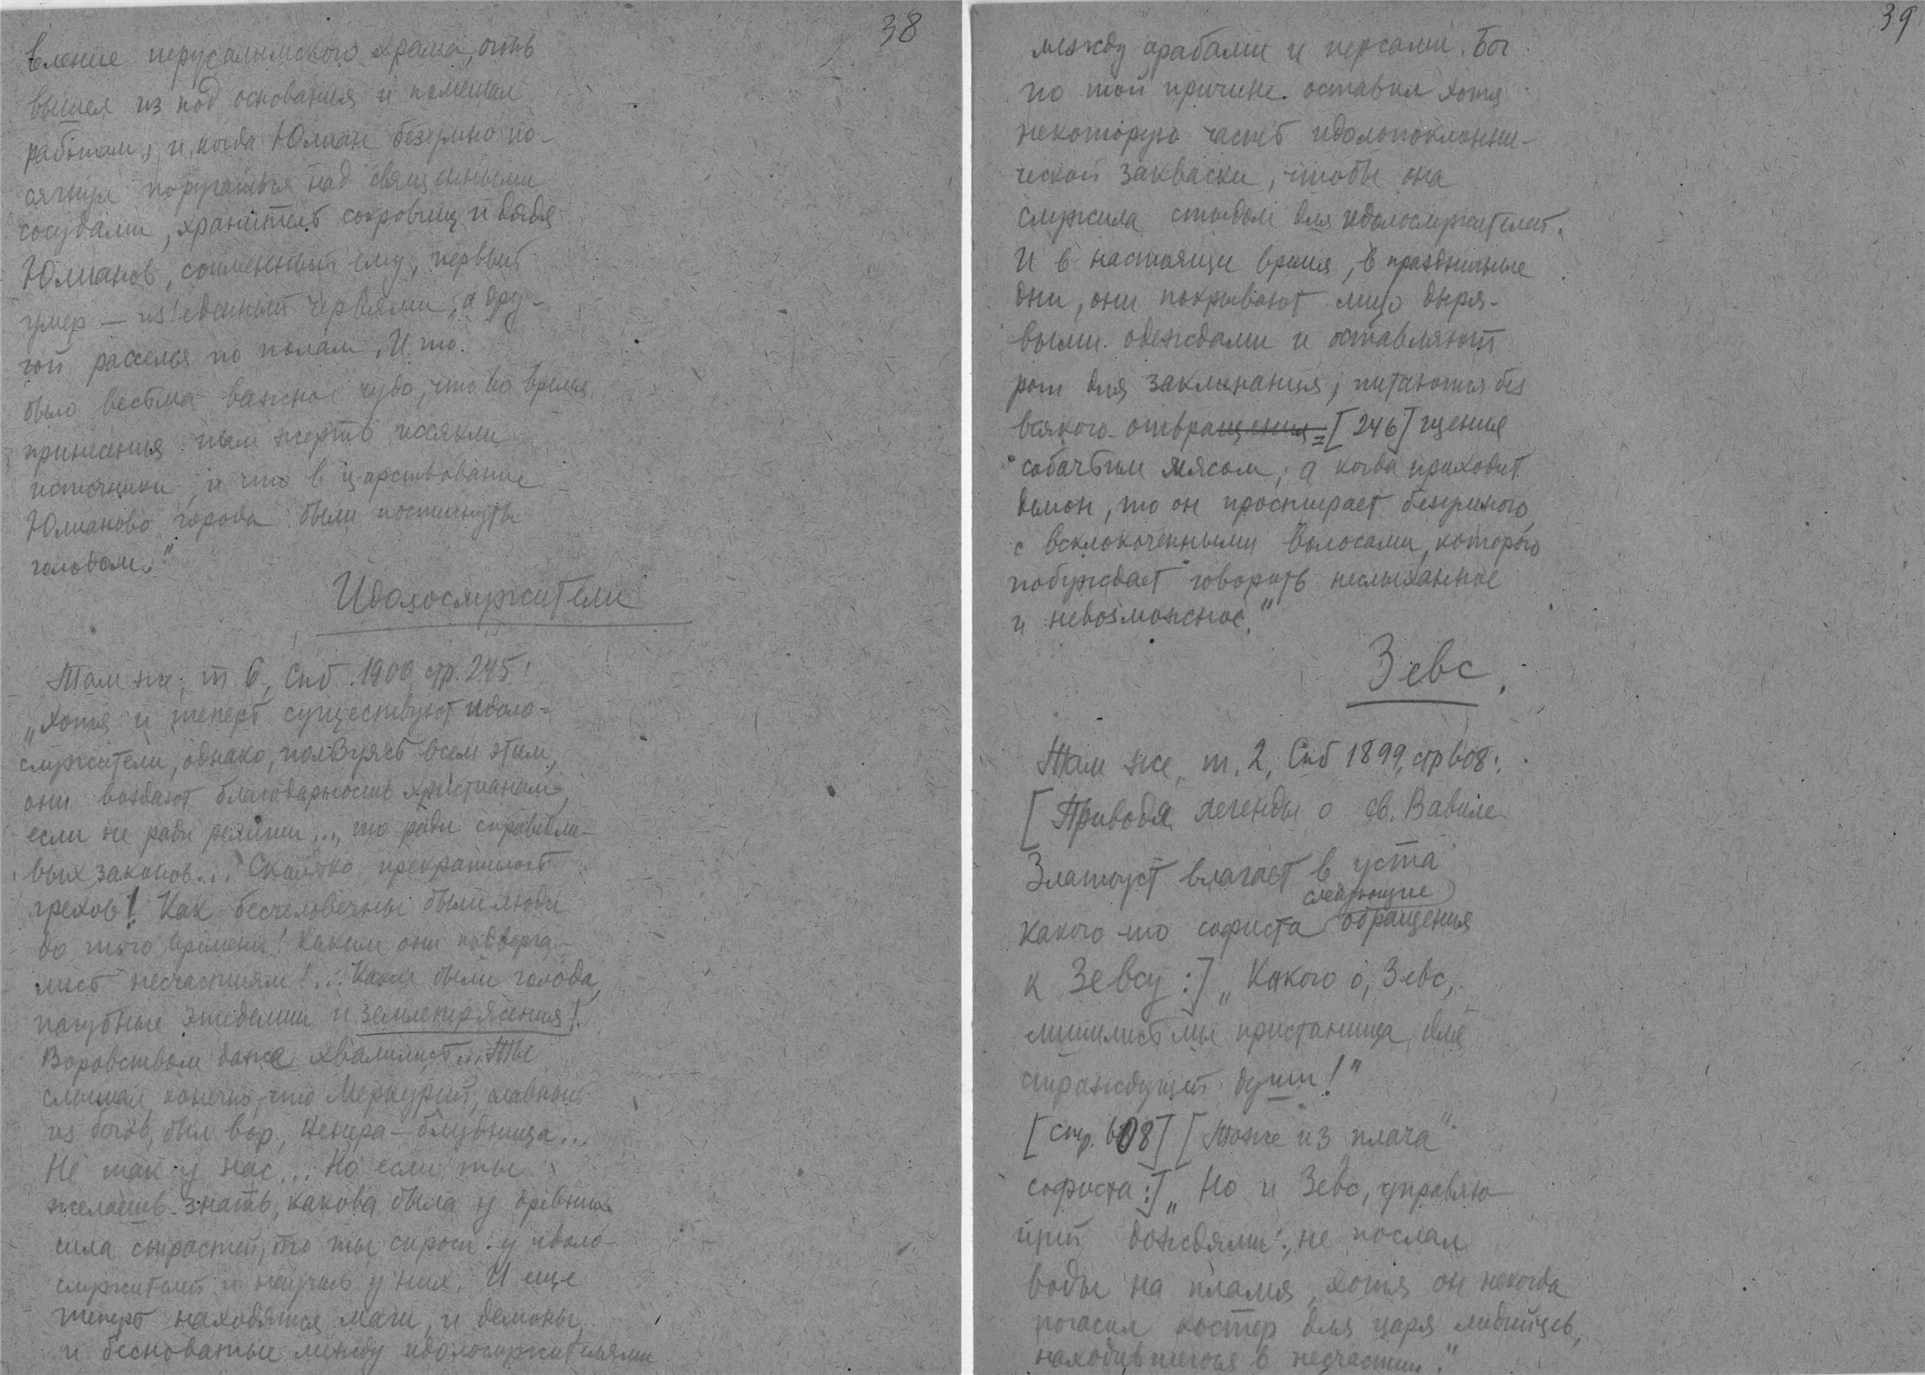 38
вление иерусалимского храма, огнь
вышел из под основания и помешал
работам, и, когда Юлиан безумно по-
сягнул поругаться над священными
сосудами, хранитель сокровищ и дядя
Юлианов, соименный ему, первый
умер — из'еденный червями, а дру-
гой расселся по полам. И то
было весьма важное чудо, что во время
принесения там жертв иссякли
источники, и что в царствование
Юлианово города были постигнуты
голодом."
Идолослужители
Там же, т 6, Спб. 1900 стр. 245:
„Хотя и теперь существуют идоло-
служители, однако, пользуясь всем этим,
они воздают благодарность христианам,
если не ради религии..., то ради справедли-
вых законов... Сколько прекратилось
грехов! Как бесчеловечны были люди
до того времени! Каким они подверга-
лись несчастиям!... Какие были голода,
пагубные эпидемии и землетрясения!
Воровством даже хвалились... Ты
слышал, конечно, что Меркурий, главный
из богов, был вор, Венера — блудница...
Не так у нас... Но если ты
желаешь знать, какова была у древних
сила страстей, то ты спроси у идоло-
служителей и научись у них. И еще
теперь находятся маги, и демоны,
и бесноватые между идолослужителями
39
между арабами и персами. Бог
по той причине оставил хотя
некоторую часть идолопоклонни-
ческой закваски, чтобы она
служила стыдом для идолослужителей.
И в настоящее время, в праздничные
дни, они покрывают лицо дыря-
выми одеждами и оставляют
рот для заклинания; питаются без
всякого отвращения = [246] щения
собачьим мясом; а когда приходит
демон, то он простирает безумного,
с всклокоченными волосами, которого
побуждает говорить неслыханное
и невозможное."
Зевс.
Там же, т. 2, Спб 1899, стр 608:
[Приводя легенды о св. Вавиле
Златоуст влагает в уста
следующие
какого-то софиста обращения
к Зевсу:] „Какого о, Зевс,
лишились мы пристанища для
страждущей души!"
[стр. 608] [Тоже из „плача"
софиста:] „Но и Зевс, управляю-
щий дождями, не послал
воды на пламя, хотя он некогда
погасил костер для царя лидийцев,
находившегося в несчастии."